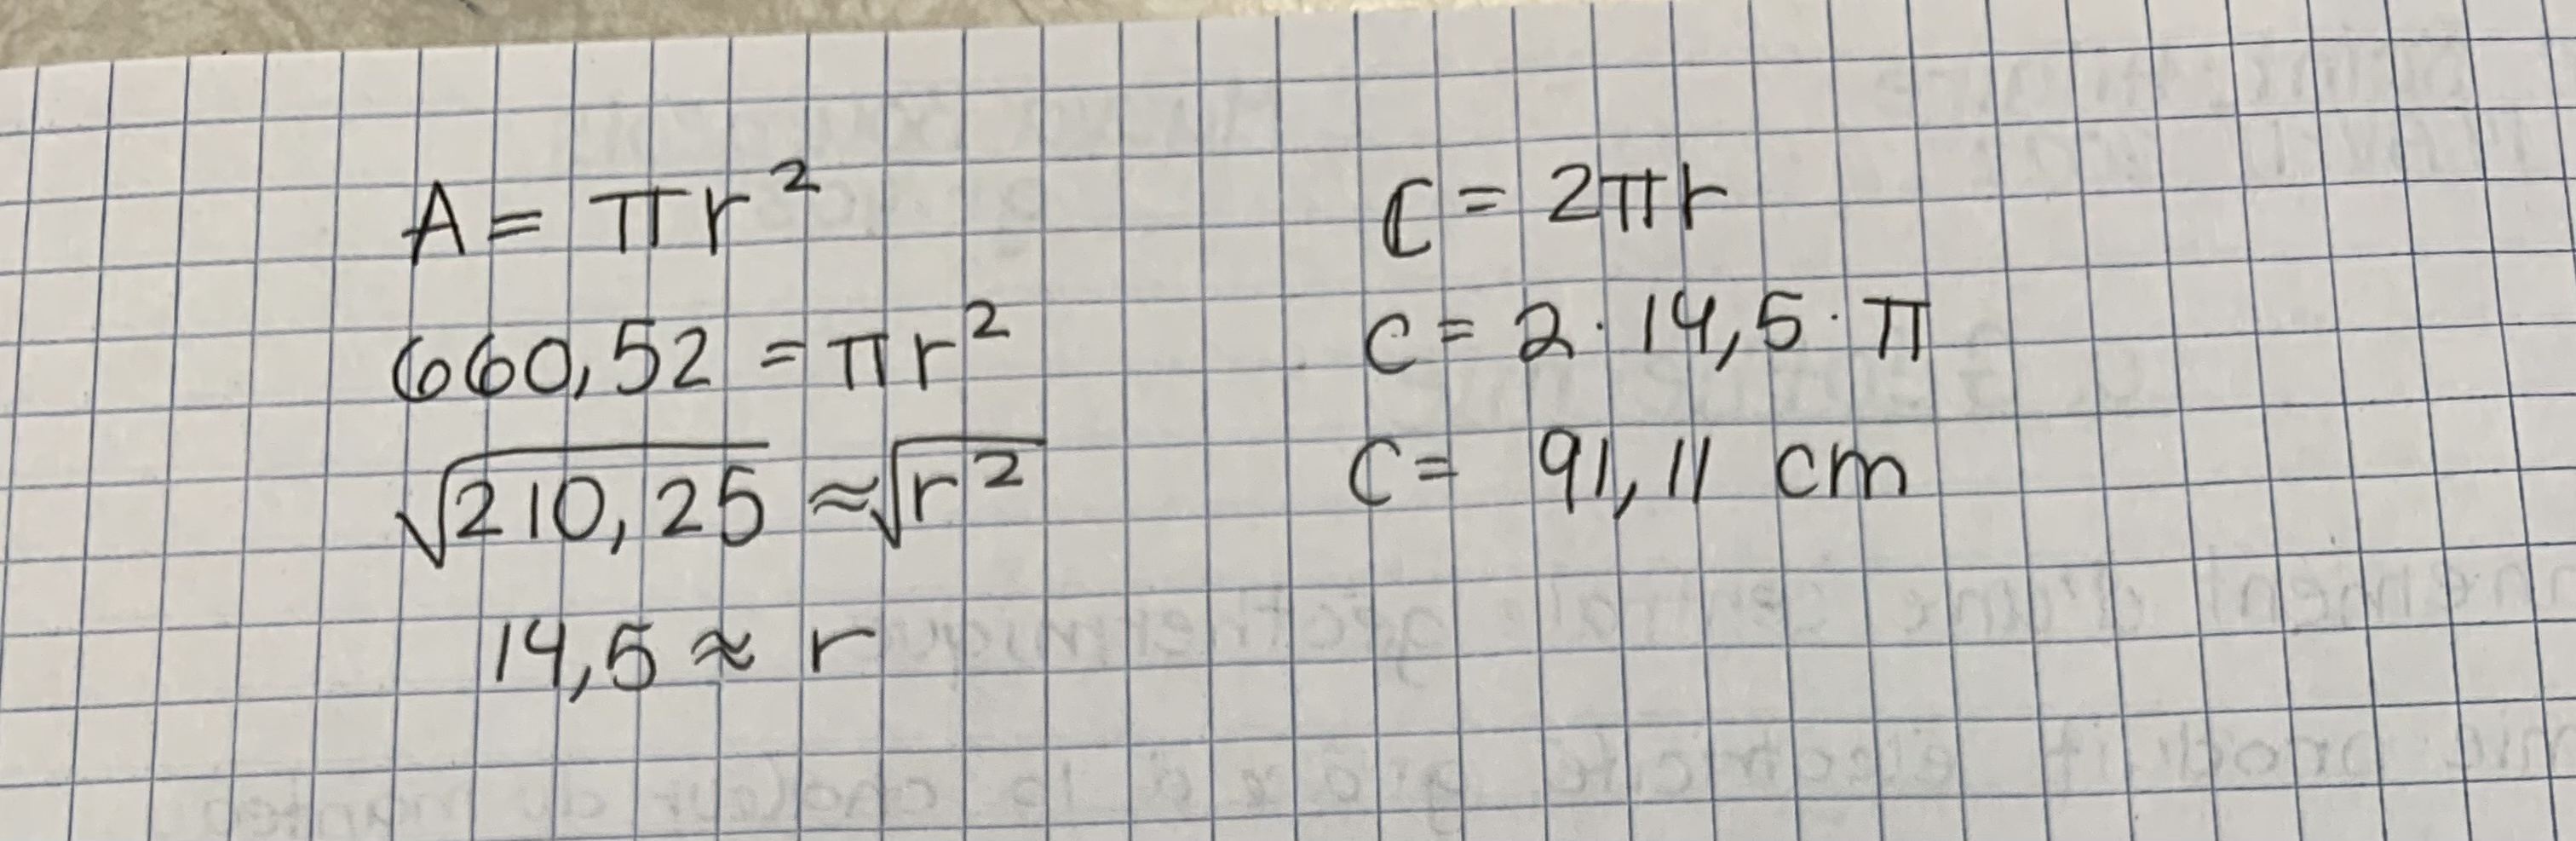 A = πr²
660,52 = πr²
√210,25 ≈ √r²
14,5 ≈ r
C = 2πr
C = 2 · 14,5 · π
C = 91,11 cm